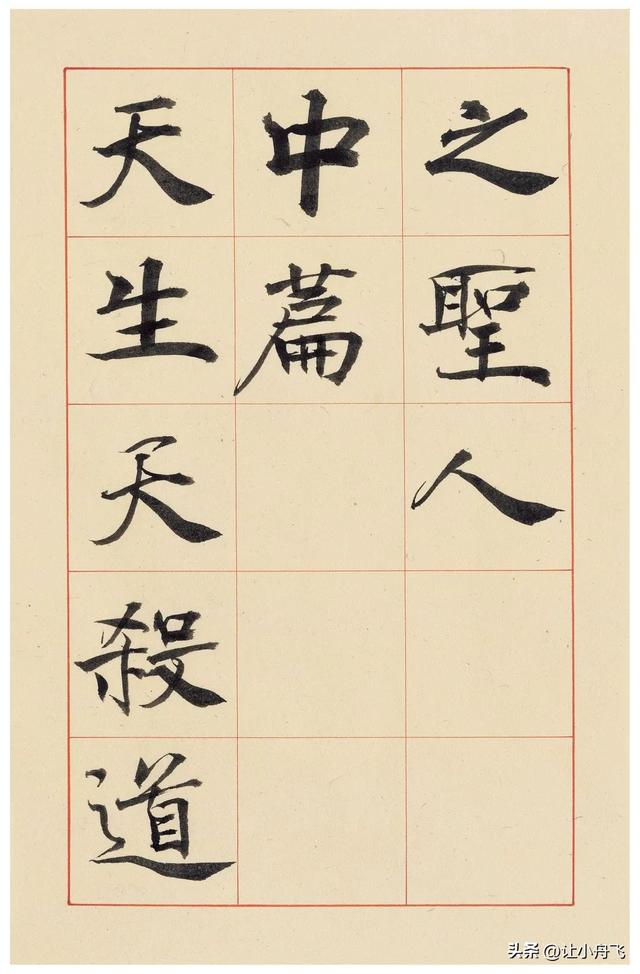 之聖人
中篇
天生天殺道
头条 @让小舟飞